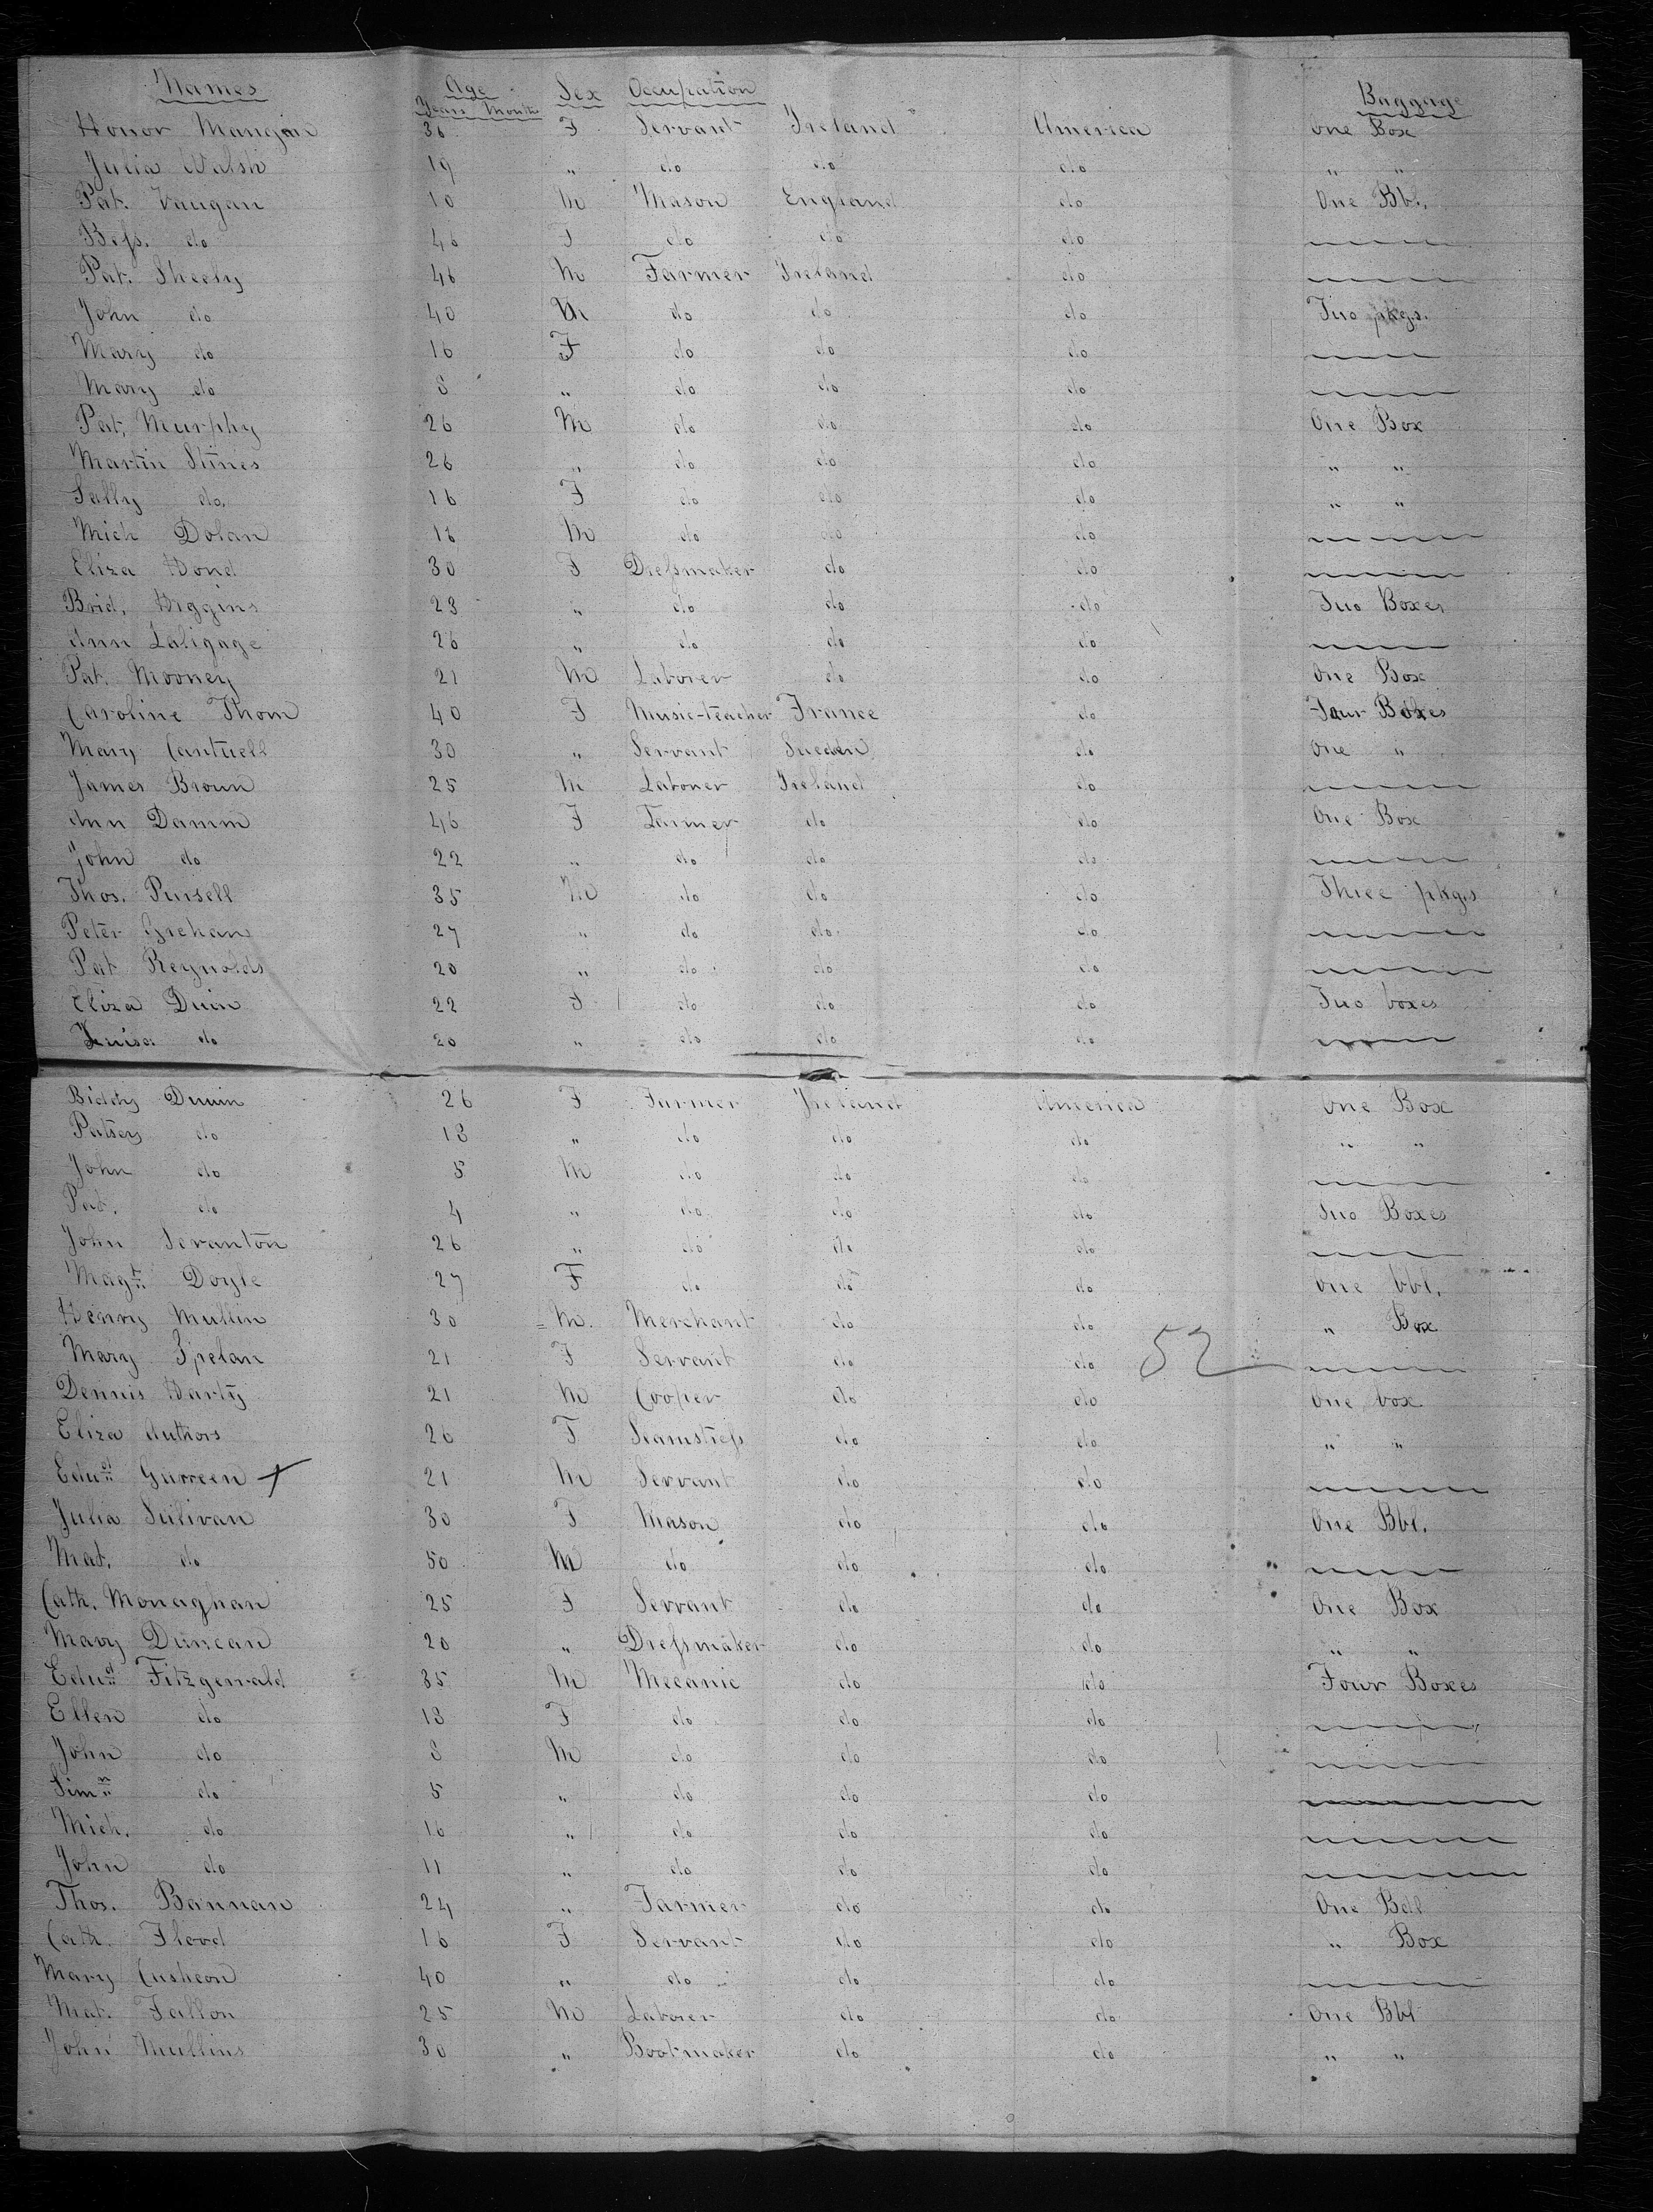 Names Age Sex Occupation Baggage
Years Months
Honor Mangan 36 F Servant Ireland America One Box
Julia Walsh 19 " do do do " "
Pat. Vaugan 10 M Mason England do One Bbl.
Bess. do 46 F do do do
Pat. Sheehy 46 M Farmer Ireland do
John do 40 M do do do Two pkgs.
Mary do 16 F do do do
Mary do 8 " do do do
Pat. Murphy 26 M do do do One Box
Martin Stines 26 " do do do " "
Sally do. 16 F do do do " "
Mich Dolan 18 M do do do
Eliza Hond 30 F Dressmaker do do
Brid. Higgins 23 " do do do Two Boxes
Ann Laligage 26 " do do do
Pat. Mooney 21 M Laborer do do One Box
Caroline Thom 40 F Music-teacher France do Four Boxes
Mary Cantwell 30 " Servant Sweden do One "
James Brown 25 M Laborer Ireland do
Ann Damm 46 F Farmer do do One Box
John do 22 " do do do
Thos. Pursell 35 M do do do Three pkgs
Peter Grehan 27 " do do do
Pat Reynolds 20 " do do do
Eliza Duin 22 F do do do Two boxes
do 20 " do do do
Biddy Duuin 26 F Farmer Ireland America One Box
Patsey do 18 " do do do " "
John do 5 M do do do
Pat. do 4 " do do do Two Boxes
John Scranton 26 " do do do
Magt. Doyle 27 F do do do One bbl.
Henry Mullin 30 M. Merchant do do " Box
Mary 21 F Servant do do 52
Dennis Harty 21 M Cooper do do One box
Eliza Authors 26 F Seamstress do do " "
Edwd Garreen + 21 M Servant do do
Julia Sulivan 30 F Mason do do One Bbl.
Mat. do 50 M do do do
Cath. Monaghan 25 F Servant do do One Box
Mary Duncan 20 " Dressmaker do do " "
Edwd Fitzgerrald 35 M Mecanic do do Four Boxes
Ellen do 13 F do do do
John do 8 M do do do
Simn do 5 " do do do
Mich. do 16 " do do do
John do 11 " do do do
Thos. Bannan 24 " Farmer do do One Bdl
Cath. Flood 16 F Servant do do " Box
Mary Cusheon 40 " do do do
Mat. Fallon 25 M Laborer do do One Bbl
John Mullins 30 " Bootmaker do do " "